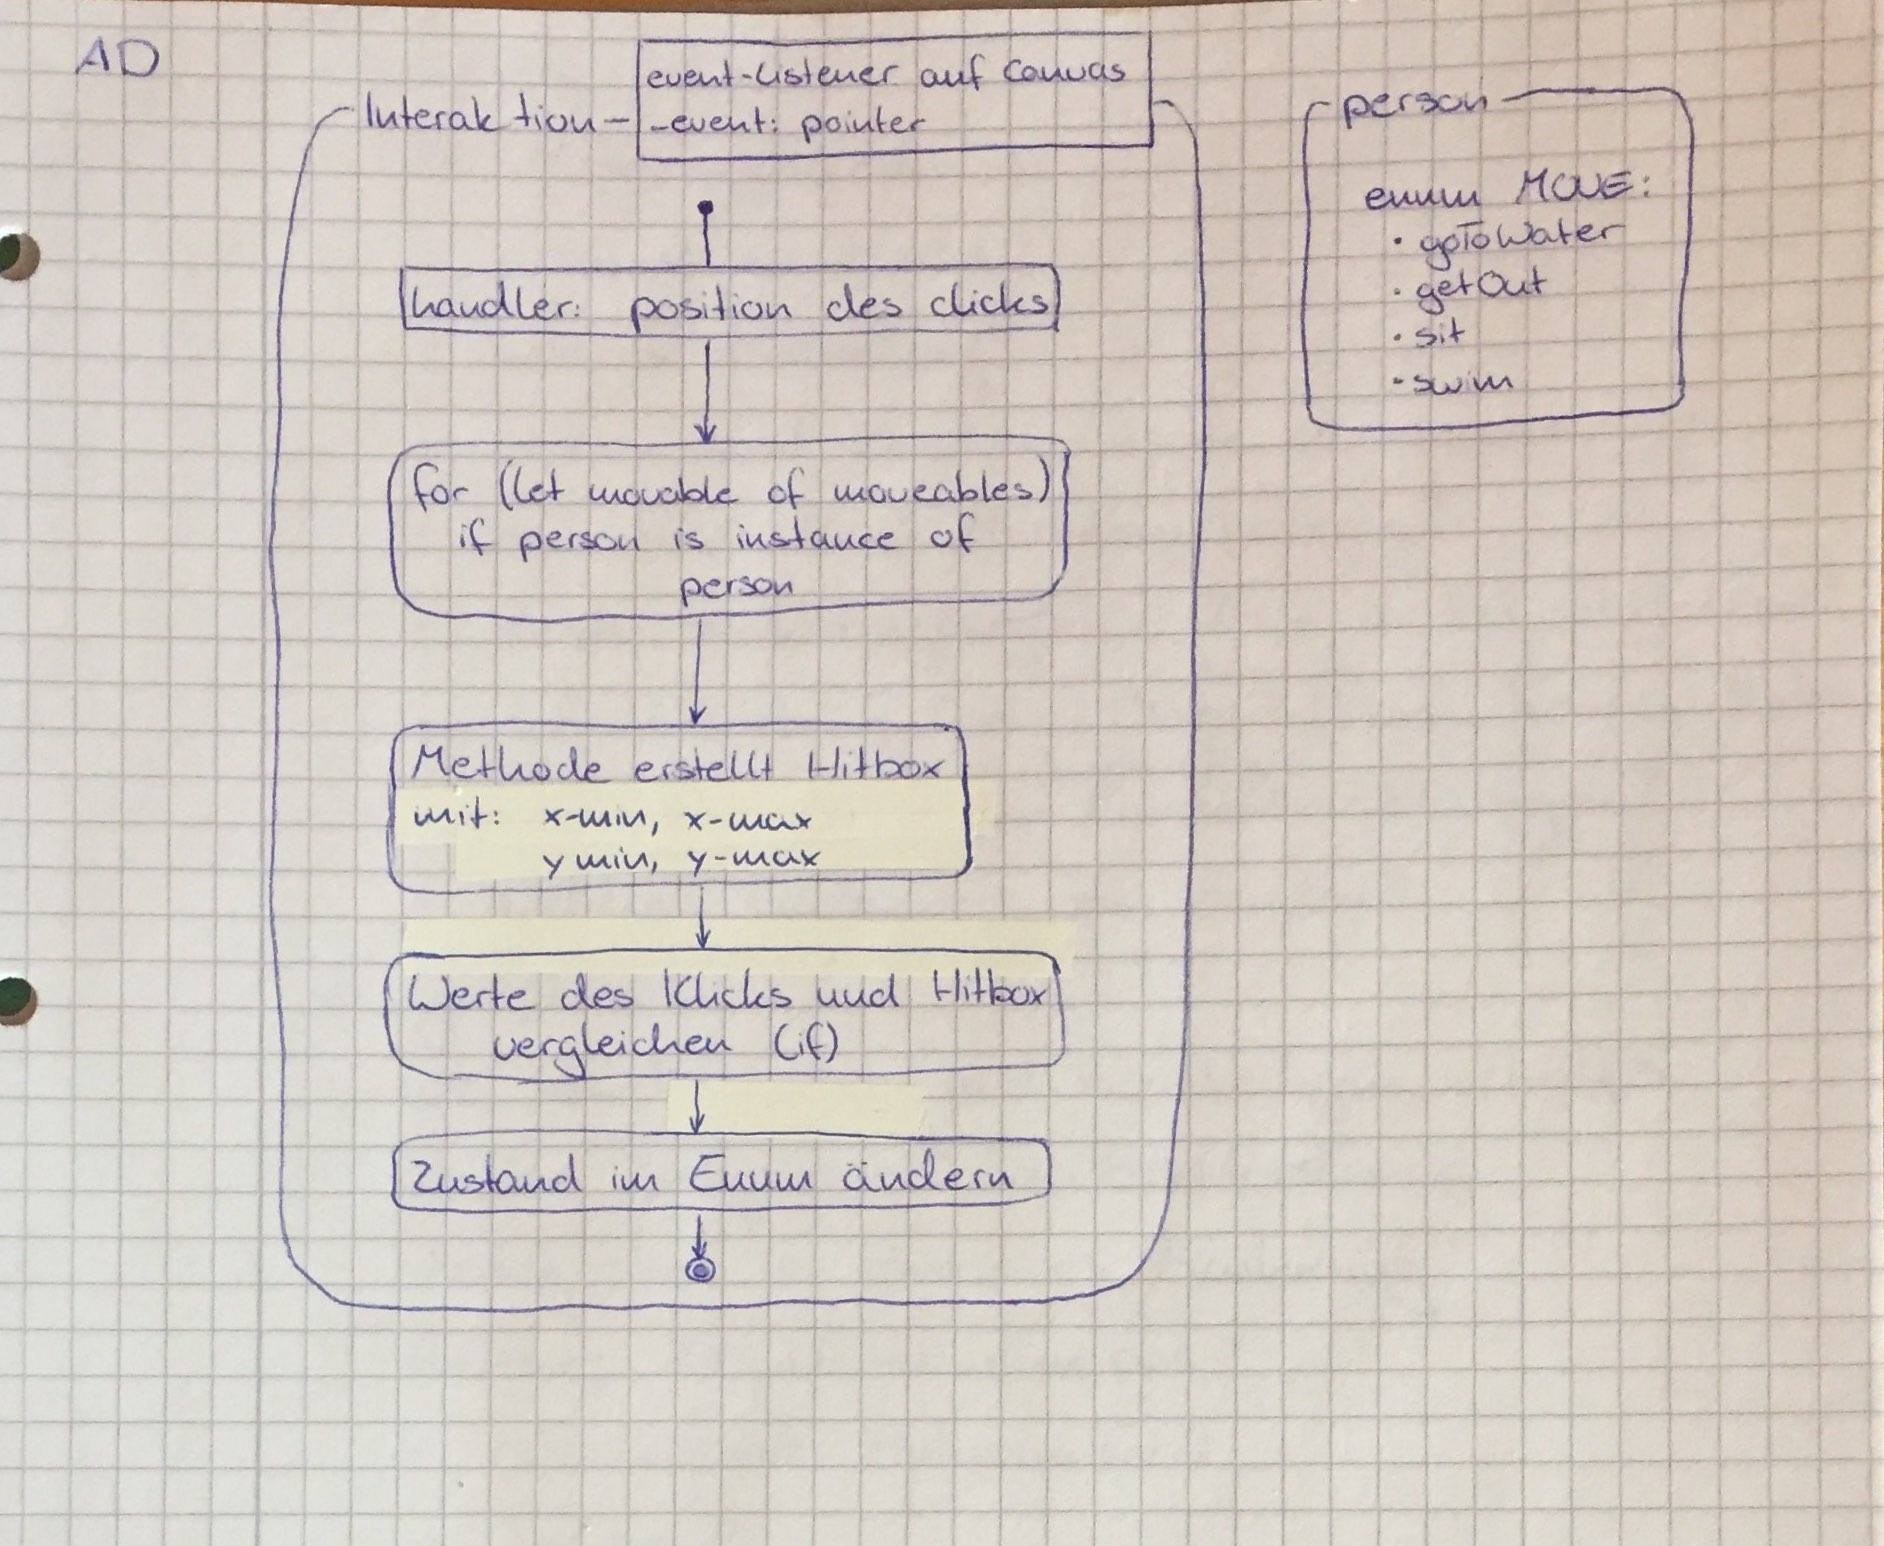 AD
Interaktion
event-Listener auf Canvas
-event: pointer
handler: position des clicks
for (let movable of moveables)
if person is instance of
person
Methode erstellt Hitbox
mit: x-min, x-max
y min, y-max
Werte des Klicks und Hitbox
vergleichen (if)
Zustand im Enum ändern
person
enum MOVE:
• goToWater
• getOut
• sit
• swim